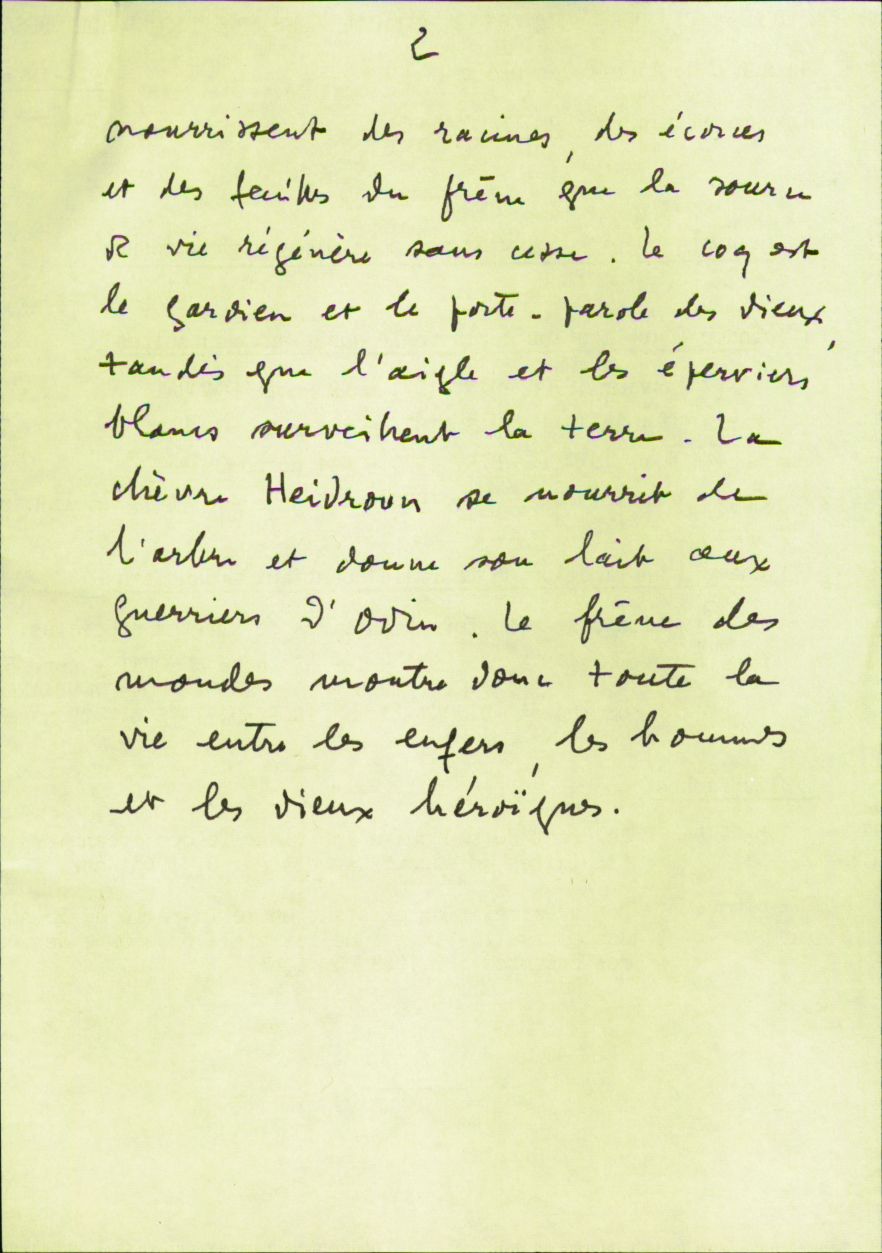 2
nourrissent des racines, des écorces
et des feuilles du frêne que la source
de vie régénère sans cesse. Le coq est
le gardien et le porte-parole des dieux,
tandis que l'aigle et les éperviers
blancs surveillent la terre. La
chèvre Heidroun se nourrit de
l'arbre et donne son lait aux
guerriers d'Odin. Le frêne des
mondes montre donc toute la
vie entre les enfers, les hommes
et les dieux héroïques.